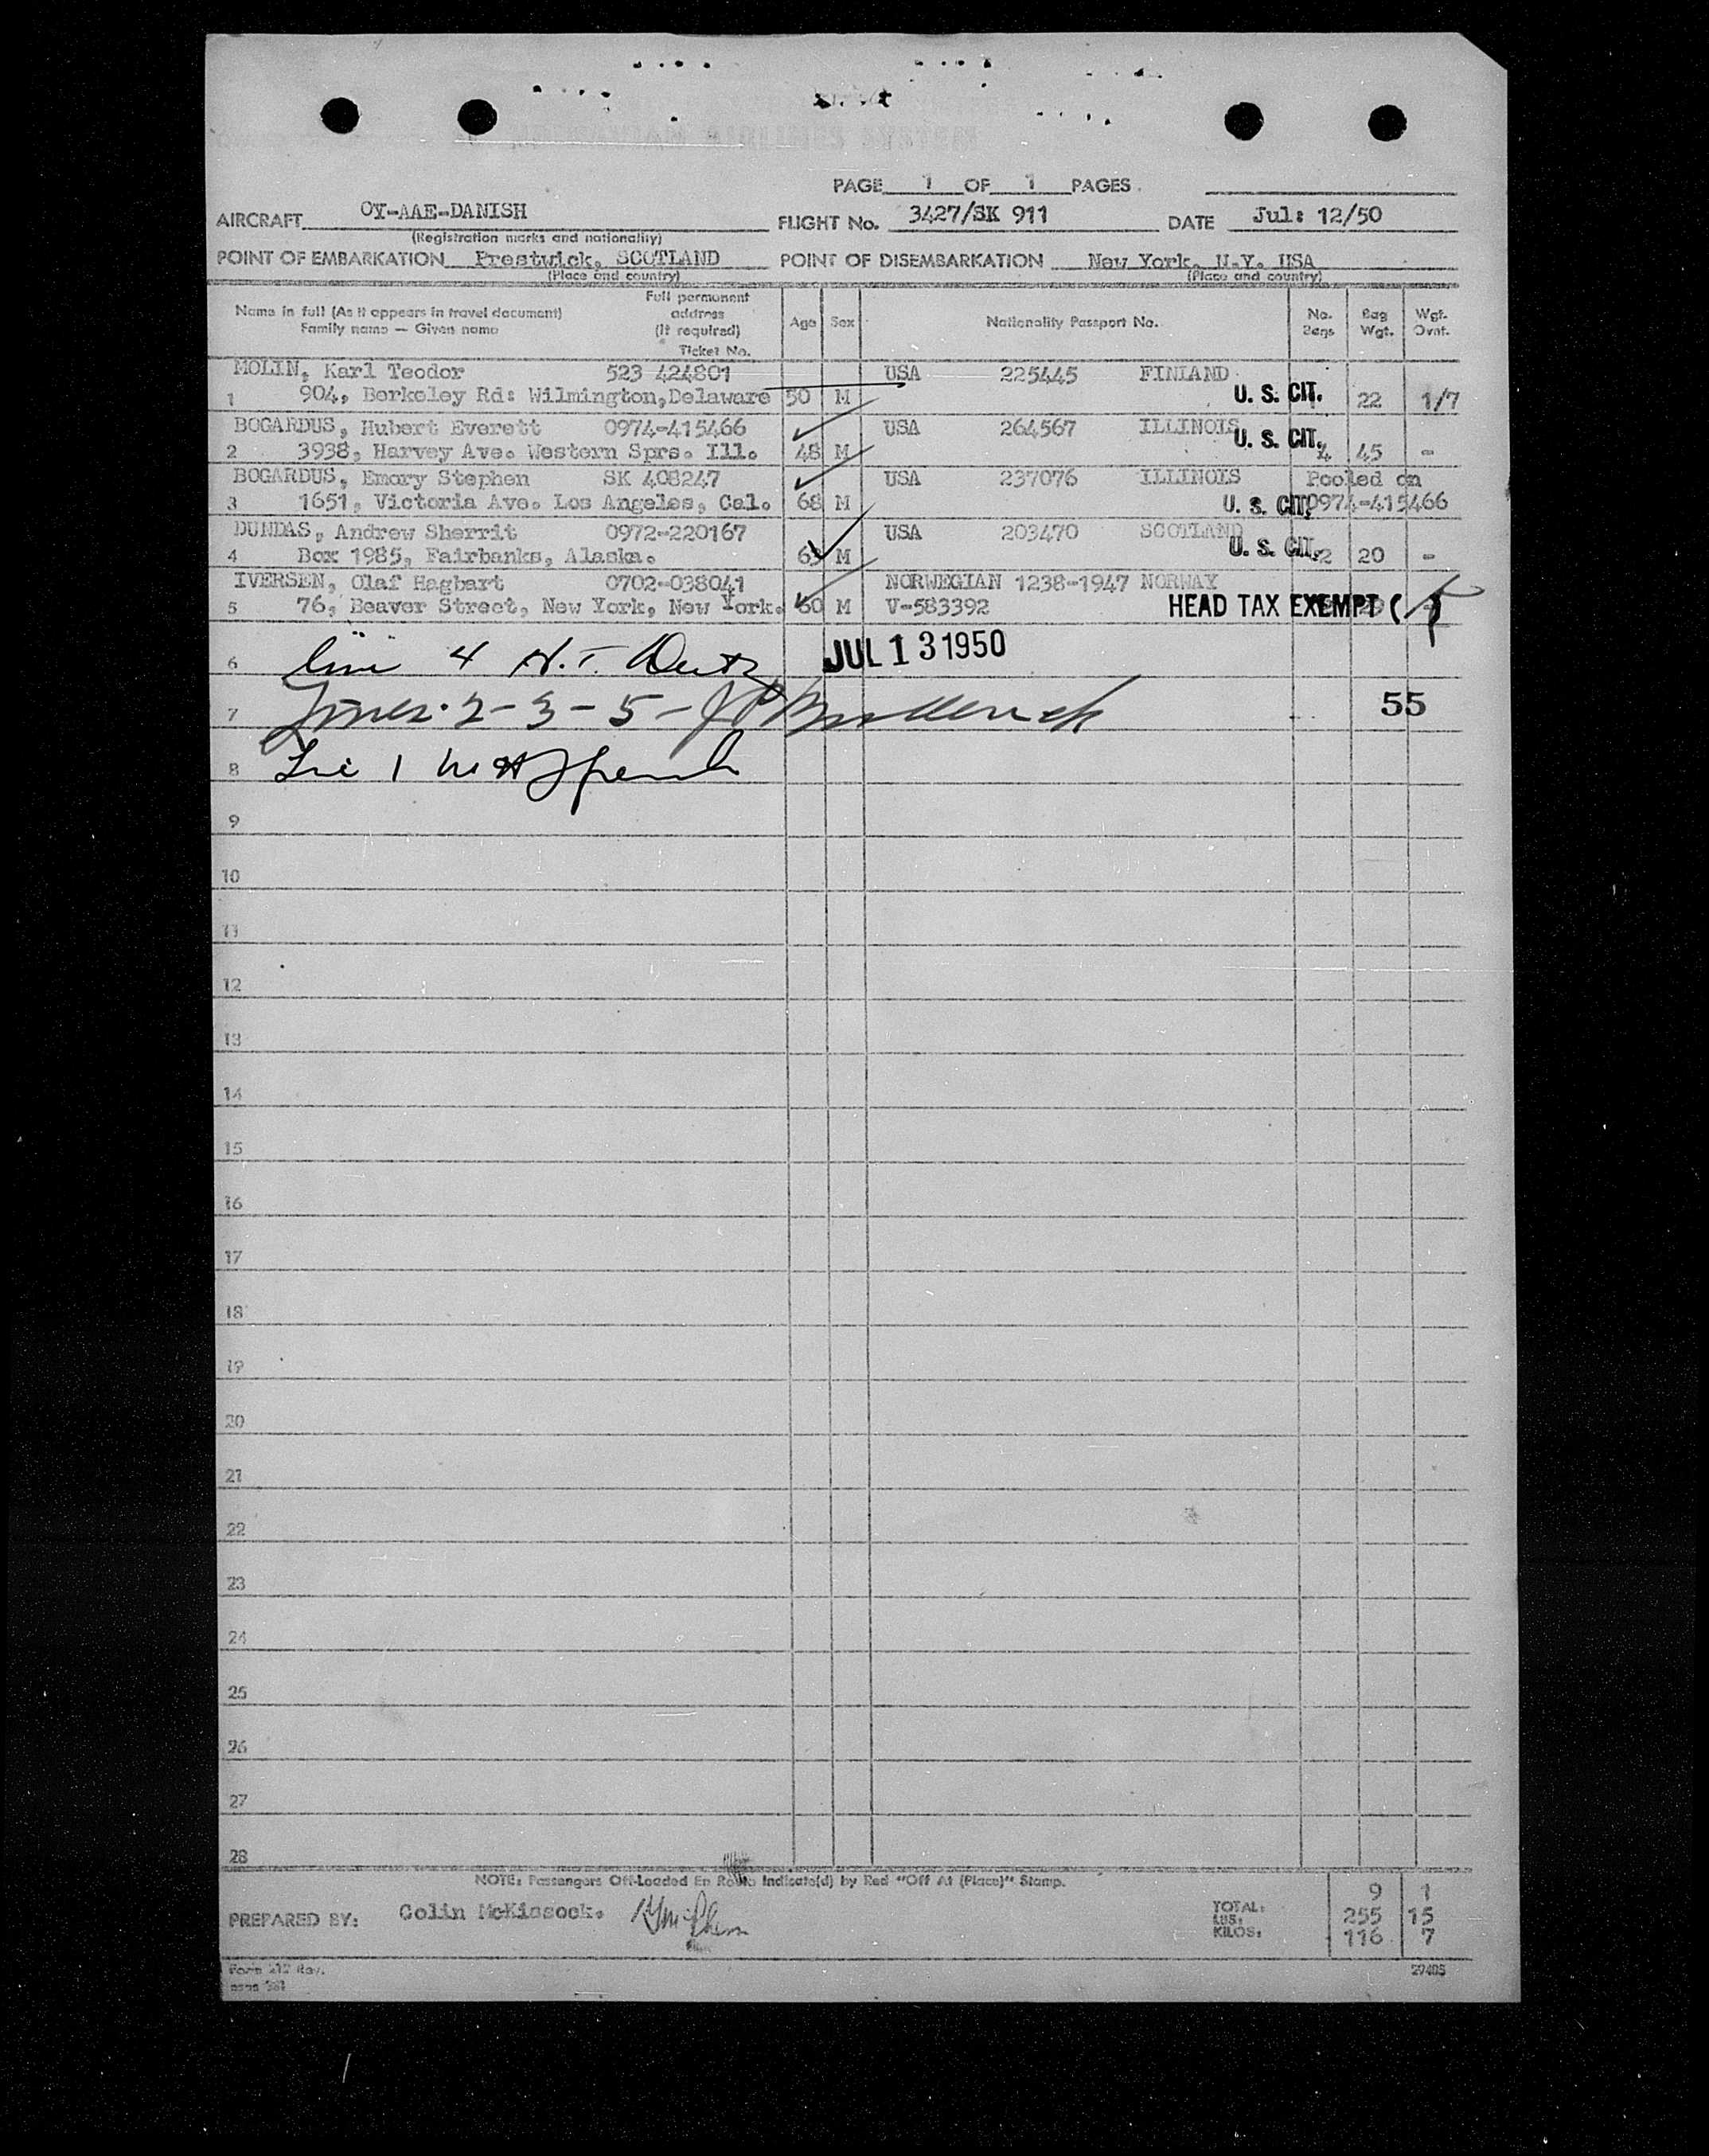 PAGE 1 OF 1 PAGES
AIRCRAFT OY-AAE-DANISH FLIGHT No. 3427/SK 911 DATE Jul: 12/50
(Registration marks and nationality)
POINT OF EMBARKATION Prestwick, SCOTLAND POINT OF DISEMBARKATION New York, N.Y. USA
(Place and country) (Place and country)
Name in full (As it appears in travel document) Family name — Given name Full permanent address (If required) Ticket No. Age Sex Nationality Passport No. No. Bags Bag Wgt. Wgt. Ovnt.
MOLIN, Karl Teodor 523 424801 USA 225445 FINLAND
1 904, Berkeley Rd: Wilmington, Delaware 50 M U. S. CIT. 22 1/7
BOGARDUS, Hubert Everett 0974-415466 USA 264567 ILLINOIS
2 3938, Harvey Ave. Western Sprs. Ill. 48 M U. S. CIT. 4 45 -
BOGARDUS, Emory Stephen SK 408247 USA 237076 ILLINOIS Pooled on
3 1651, Victoria Ave. Los Angeles, Cal. 68 M U. S. CIT. 0974-415466
DUNDAS, Andrew Sherrit 0972-220167 USA 203470 SCOTLAND
4 Box 1985, Fairbanks, Alaska. M U. S. CIT. 2 20 -
IVERSEN, Olaf Hagbart 0702-038041 NORWEGIAN 1238-1947 NORWAY
5 76, Beaver Street, New York, New York. 60 M V-583392 HEAD TAX EXEMPT (
6 line 4 JUL 13 1950
7 Lines 2-3-5- 55
8 1
9
10
11
12
13
14
15
16
17
18
19
20
21
22
23
24
25
26
27
28
NOTE: Passengers Off-Loaded En Route Indicate(d) by Red "Off At (Place)" Stamp.
9 1
PREPARED BY: Colin McKissock. TOTAL:
LBS: 255 15
KILOS: 116 7
Form 212 Rev. 27485